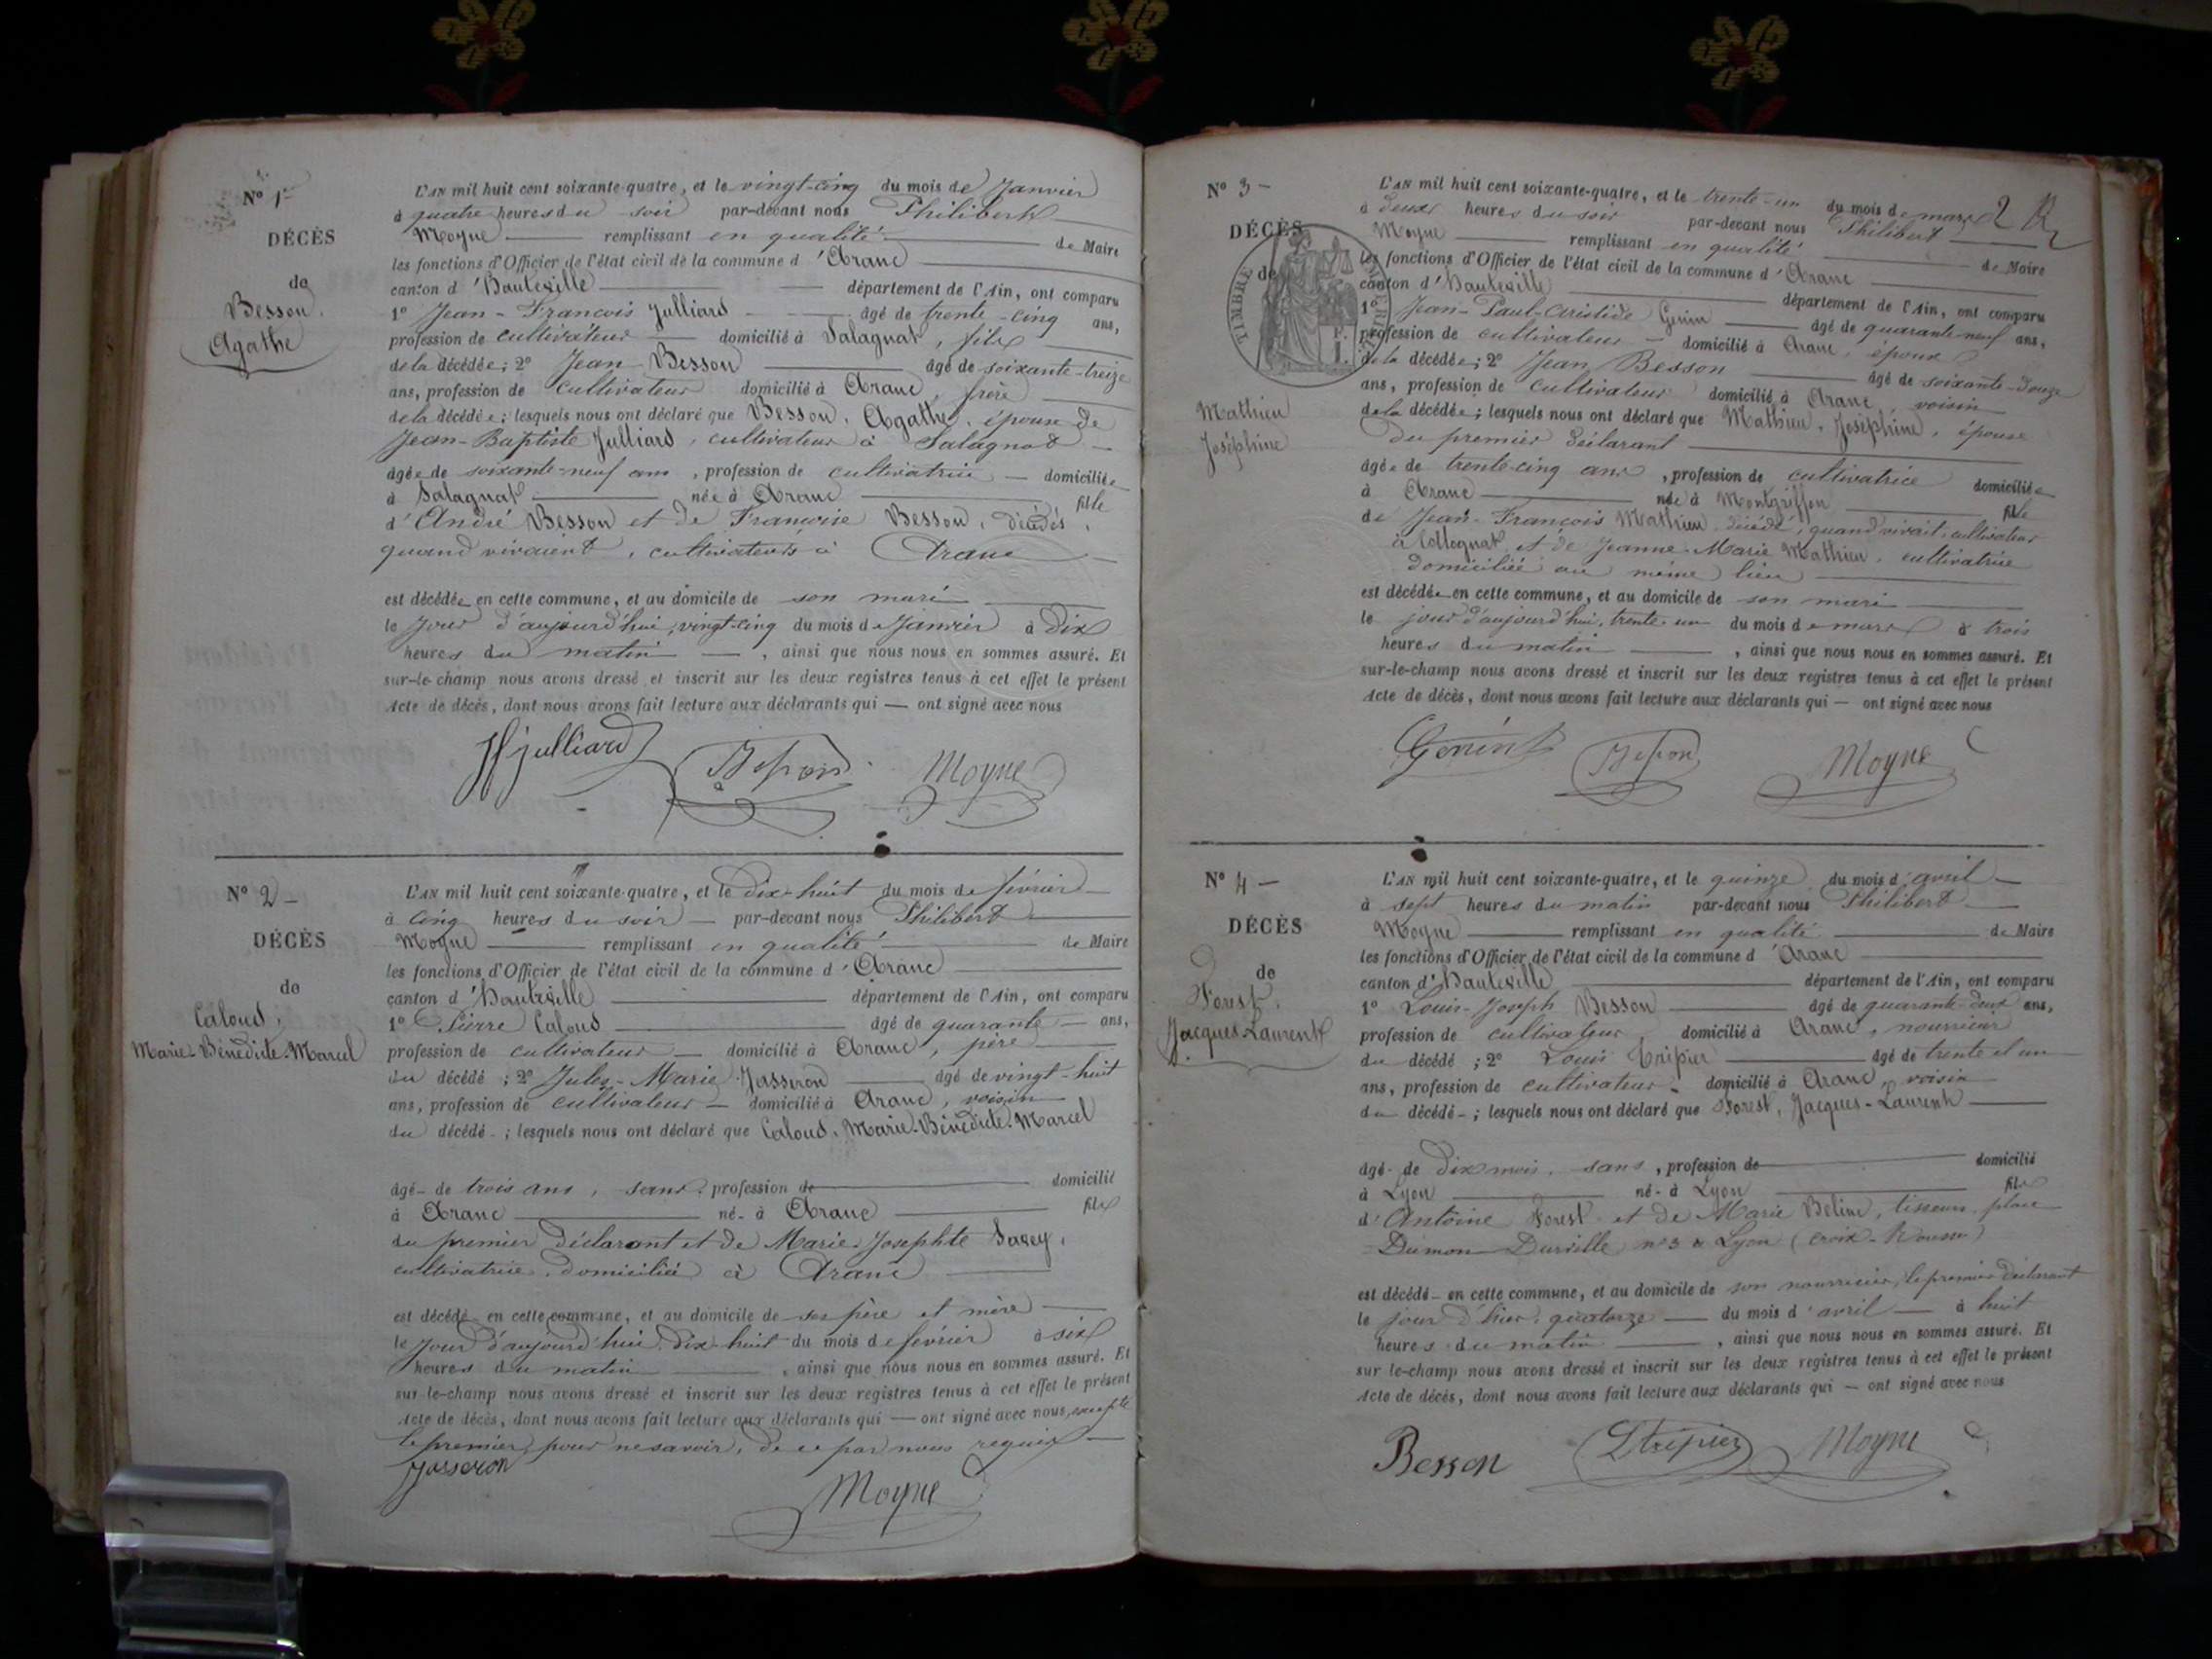 N° 1 -
DÉCÈS
de
Besson
Agathe
L'AN mil huit cent soixante-quatre, et le vingt-cinq du mois de Janvier
à quatre heures du soir par-devant nous Philibert
Moyne remplissant en qualité de Maire
les fonctions d'Officier de l'état civil de la commune d'Aranc
canton d'Hauteville département de l'Ain, ont comparu
1° Jean-François Julliard âgé de trente-cinq ans,
profession de cultivateur domicilié à Salagnat, fils
de la décédée; 2° Jean Besson âgé de soixante-treize
ans, profession de cultivateur domicilié à Aranc, frère
de la décédée; lesquels nous ont déclaré que Besson, Agathe, épouse de
Jean-Baptiste Julliard, cultivateur à Salagnat
âgée de soixante-neuf ans, profession de cultivatrice domiciliée
à Salagnat née à Aranc fille
d'André Besson et de Françoise Besson, décédés,
quand vivaient, cultivateurs à Aranc
est décédée en cette commune, et au domicile de son mari
le jour d'aujourd'hui, vingt-cinq du mois de Janvier à dix
heures du matin, ainsi que nous nous en sommes assuré. Et
sur-le-champ nous avons dressé et inscrit sur les deux registres tenus à cet effet le présent
Acte de décès, dont nous avons fait lecture aux déclarants qui — ont signé avec nous
JF Julliard Besson Moyne
N° 2 -
DÉCÈS
de
Caloud,
Marie-Bénédicte-Marcel
L'AN mil huit cent soixante-quatre, et le dix-huit du mois de février
à cinq heures du soir par-devant nous Philibert
Moyne remplissant en qualité de Maire
les fonctions d'Officier de l'état civil de la commune d'Aranc
canton d'Hauteville département de l'Ain, ont comparu
1° Pierre Caloud âgé de quarante ans,
profession de cultivateur domicilié à Aranc, père
du décédé; 2° Jules-Marie Josseron âgé de vingt-huit
ans, profession de cultivateur domicilié à Aranc, voisin
du décédé; lesquels nous ont déclaré que Caloud, Marie-Bénédicte-Marcel
âgé de trois ans, sans profession de domicilié
à Aranc né à Aranc fils
du premier déclarant et de Marie-Josephte Savey,
cultivatrice, domiciliée à Aranc
est décédé en cette commune, et au domicile de ses père et mère
le jour d'aujourd'hui, dix-huit du mois de février à six
heures du matin, ainsi que nous nous en sommes assuré. Et
sur-le-champ nous avons dressé et inscrit sur les deux registres tenus à cet effet le présent
Acte de décès, dont nous avons fait lecture aux déclarants qui — ont signé avec nous, excepté
le premier, pour ne savoir, de ce par nous requis
Josseron
Moyne
2
N° 3 -
DÉCÈS
de
TIMBRE
Mathieu
Joséphine
L'AN mil huit cent soixante-quatre, et le trente-un du mois de mars
à deux heures du soir par-devant nous Philibert
Moyne remplissant en qualité de Maire
les fonctions d'Officier de l'état civil de la commune d'Aranc
canton d'Hauteville département de l'Ain, ont comparu
1° Jean-Paul-Aristide Genin âgé de quarante-neuf ans,
profession de cultivateur domicilié à Aranc, époux
de la décédée; 2° Jean Besson âgé de soixante-douze
ans, profession de cultivateur domicilié à Aranc, voisin
de la décédée; lesquels nous ont déclaré que Mathieu, Joséphine, épouse
du premier déclarant
âgée de trente-cinq ans, profession de cultivatrice domiciliée
à Aranc née à Montgriffon fille
de Jean-François Mathieu, décédé, quand vivait, cultivateur
à Collognat et de Jeanne-Marie Mathieu, cultivatrice
domiciliée au même lieu
est décédée en cette commune, et au domicile de son mari
le jour d'aujourd'hui, trente-un du mois de mars à trois
heures du matin, ainsi que nous nous en sommes assuré. Et
sur-le-champ nous avons dressé et inscrit sur les deux registres tenus à cet effet le présent
Acte de décès, dont nous avons fait lecture aux déclarants qui — ont signé avec nous
Genin Besson Moyne
N° 4 -
DÉCÈS
de
Forest,
Jacques-Laurent
L'AN mil huit cent soixante-quatre, et le quinze du mois d'avril
à sept heures du matin par-devant nous Philibert
Moyne remplissant en qualité de Maire
les fonctions d'Officier de l'état civil de la commune d'Aranc
canton d'Hauteville département de l'Ain, ont comparu
1° Louis-Joseph Besson âgé de quarante-deux ans,
profession de cultivateur domicilié à Aranc, nourricier
du décédé; 2° Louis Tripier âgé de trente et un
ans, profession de cultivateur domicilié à Aranc, voisin
du décédé; lesquels nous ont déclaré que Forest, Jacques-Laurent
âgé de dix mois, sans, profession de domicilié
à Lyon né à Lyon fils
d'Antoine Forest et de Marie Beline, tisseurs, place
Dumon-Durville n° 3 à Lyon (Croix-Rousse)
est décédé en cette commune, et au domicile de son nourricier, le premier déclarant
le jour d'hier, quatorze du mois d'avril à huit
heures du matin, ainsi que nous nous en sommes assuré. Et
sur-le-champ nous avons dressé et inscrit sur les deux registres tenus à cet effet le présent
Acte de décès, dont nous avons fait lecture aux déclarants qui — ont signé avec nous
Besson L tripier Moyne